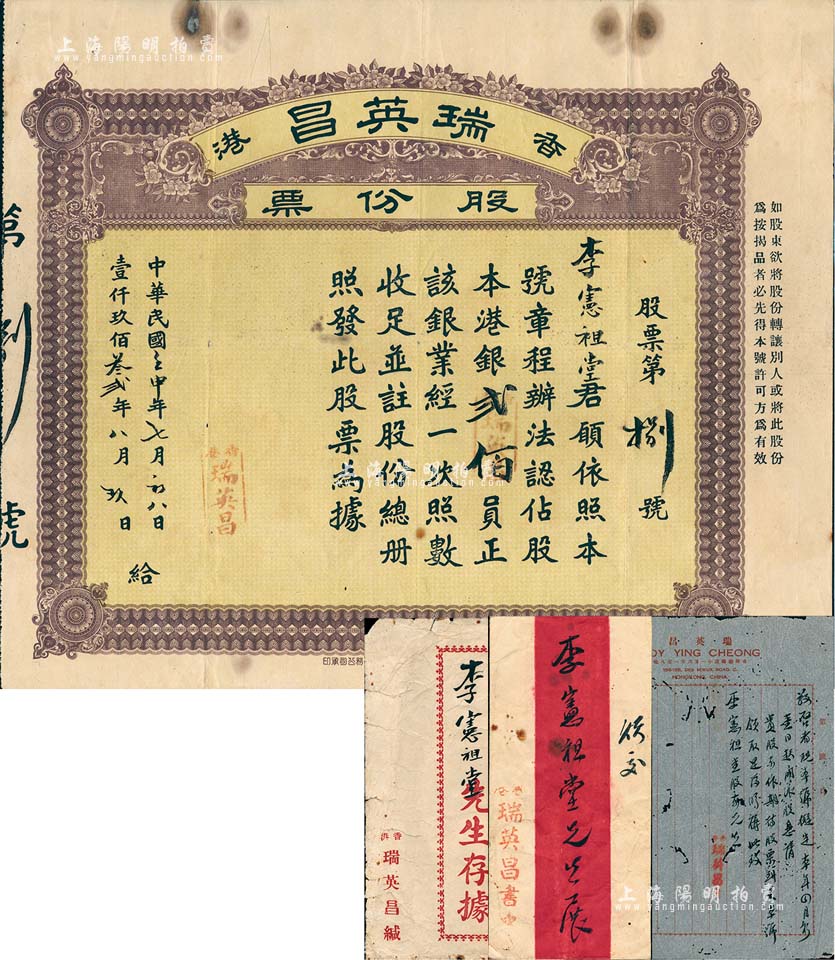 上海陽明拍賣
www.yangmingauction.com
香瑞英昌港
股份票
如股東欲將股份轉讓別人或將此股份
為按揭品者必先得本號許可方為有效
股票第捌號
李憲祖堂君願依照本
號章程辦法認佔股
本港銀弍佰員正
該銀業經一次照數
收足並註股份總册
照發此股票為據
中華民國壬申年七月初八日
壹仟玖佰叁弍年八月玖日
給
香港
瑞英昌
第捌號
上海陽明拍賣
www.yangmingauction.com
李憲祖堂先生存據
香港
瑞英昌緘
頌交
李憲祖堂先生展
香港
瑞英昌書柬
瑞英昌
OY YING CHEONG
HONGKONG, CHINA.
瑞英昌
上海陽明拍賣
www.yangmingauction.com